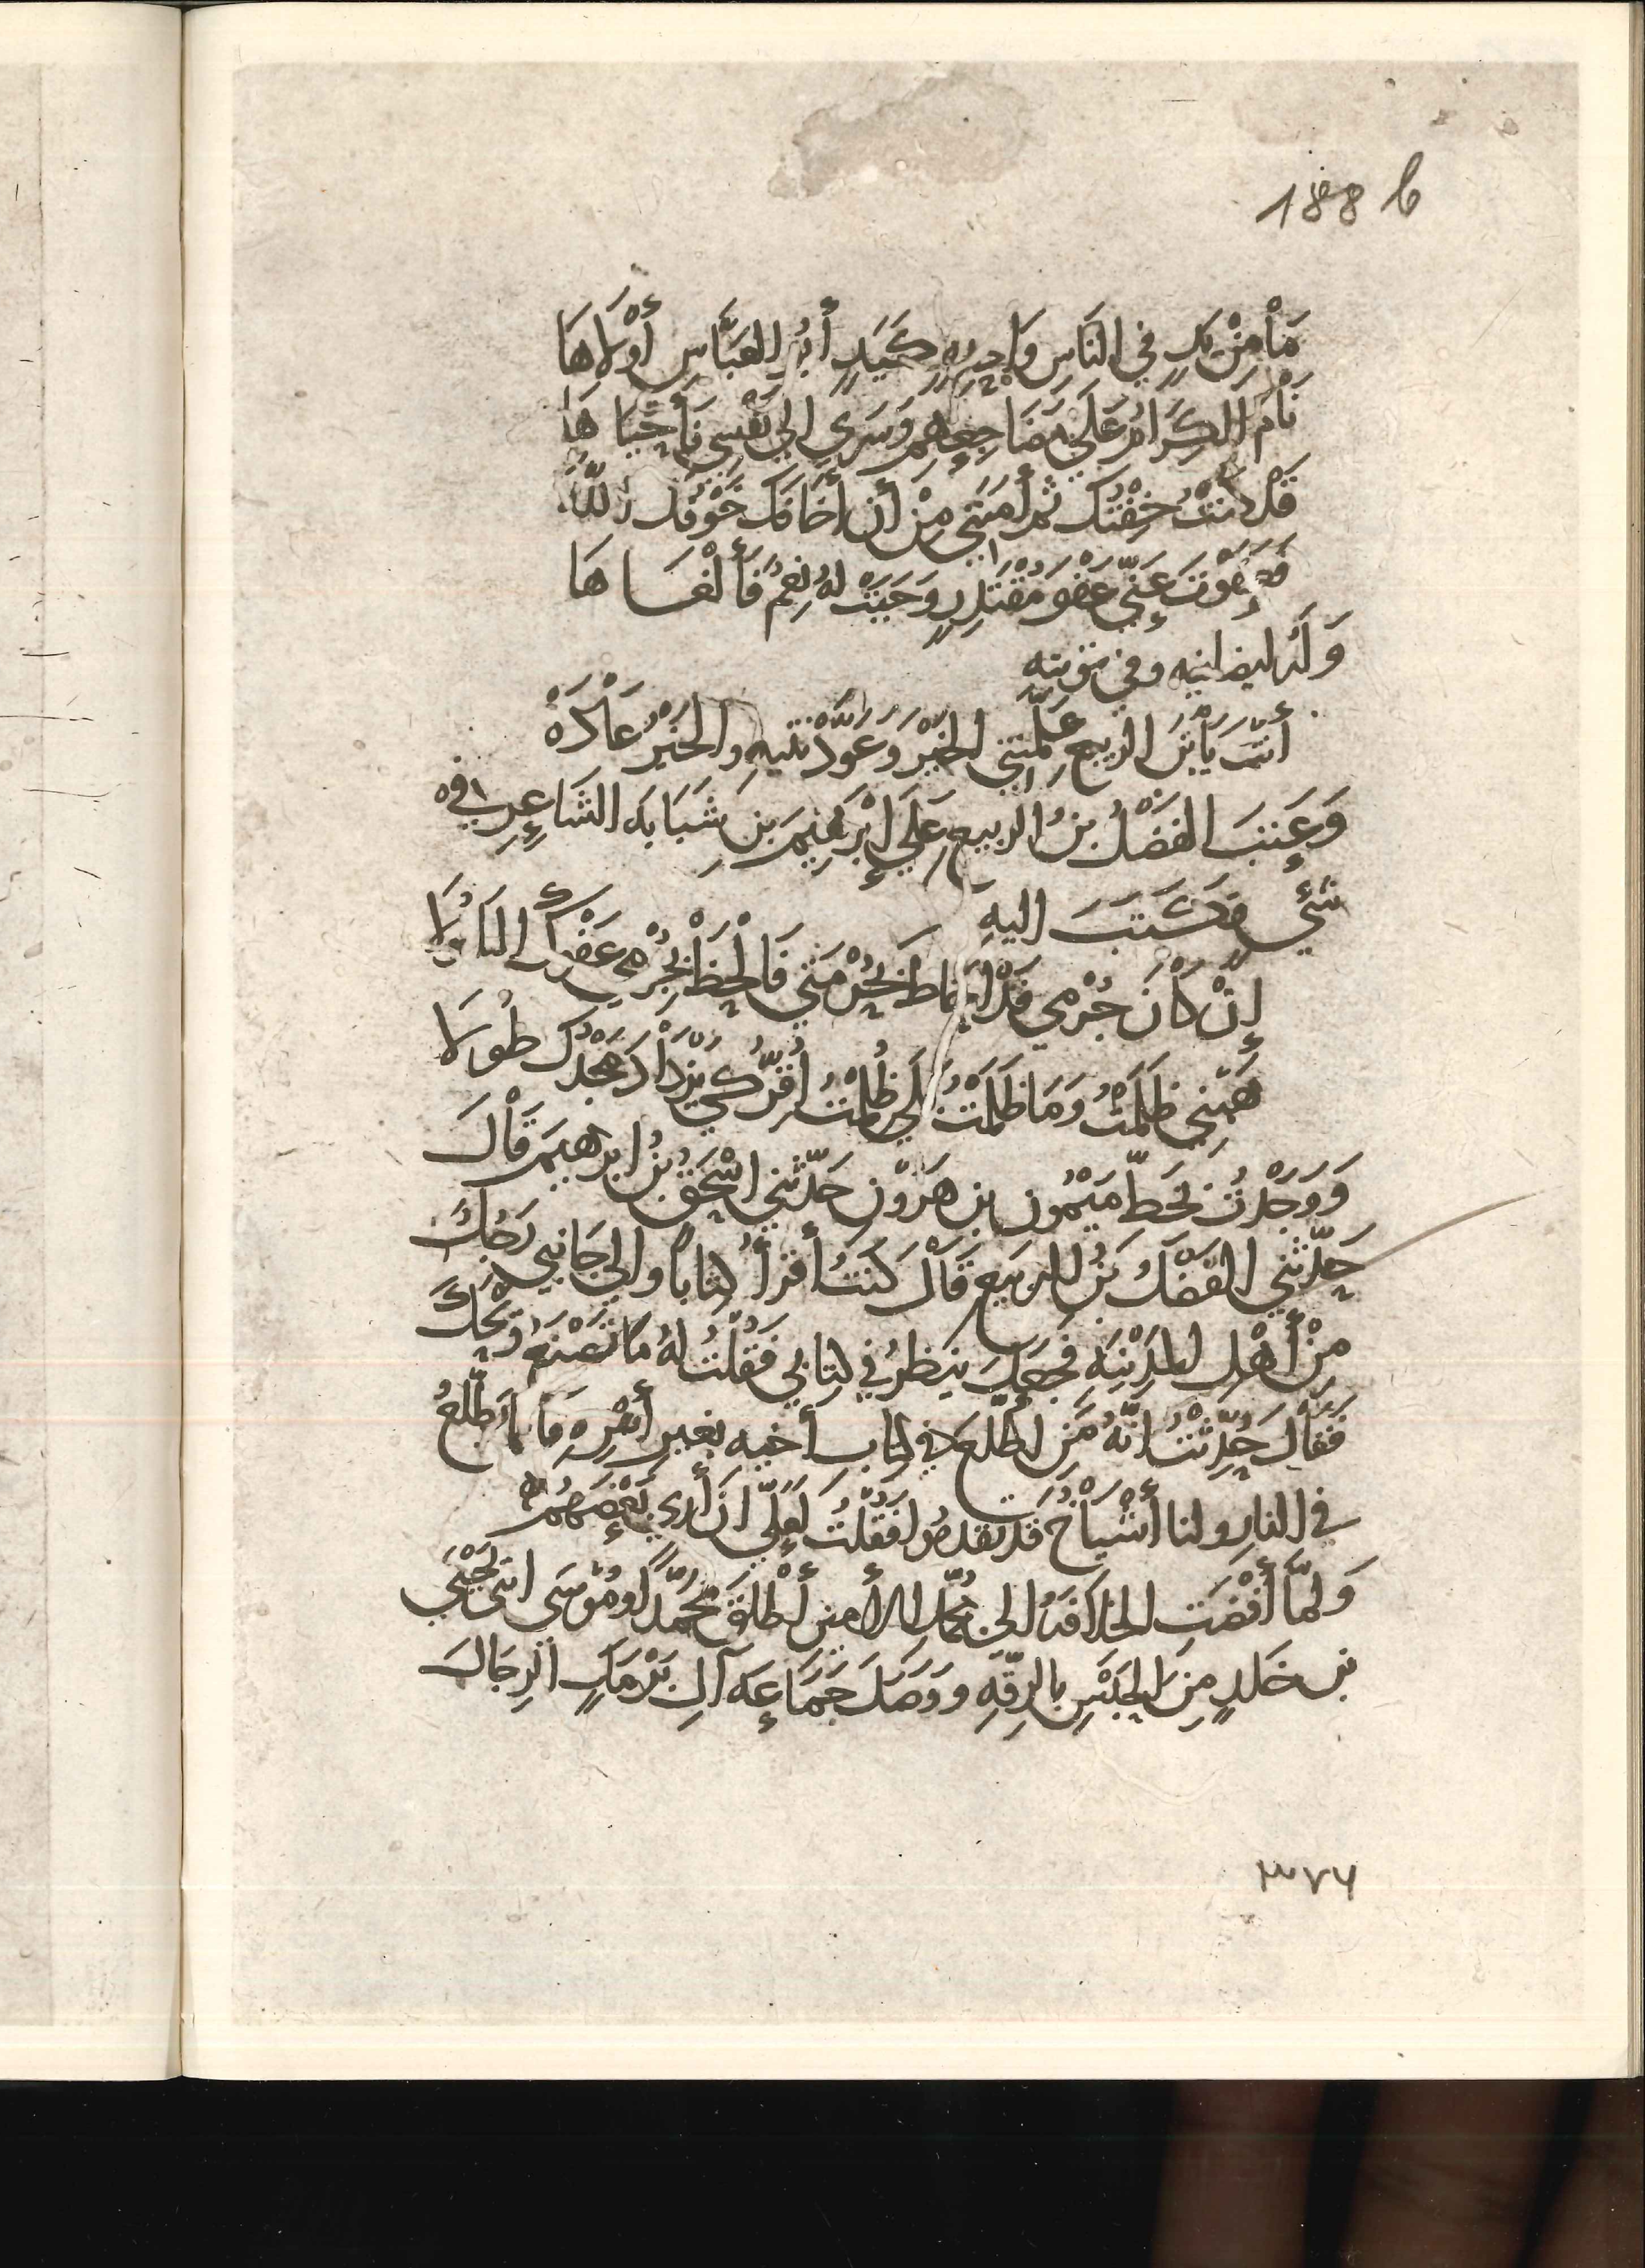 188 b
مَا مِنْ يَدٍ فِي النَّاسِ وَاحِدِهٍ كَيَدٍ أَبُو العَبَّاسِ أَوْلَاهَا
نَامَ الكِرَامُ عَلَى مَضَاجِعِهِمْ وَسَرَى إِلَى نَفْسِي فَأَحْيَاهَا
قَدْ كُنْتُ خِفْتُكَ ثم أَمَّنَنِي مِنْ أَن أَخَافَكَ خَوْفُك اللّهَ
فَعَفَوْتَ عَنِّي عَفْوَ مُقْتَدِرٍ وَجَبَتْ لهُ نِعَمٌ فَأَلْغَاهَا
وَلَهُ ايضا فيه وفي توبته
أَنْتَ يَا بْنَ الربيعِ عَلَّمْتَنِي الخَيْرَ وَعَوَّدْتَنِيهِ والخَيْرُ عَادَهْ
وَعَتِبَ الفَضْلُ بنُ الربيعِ عَلَى إِبْرَهِيمَ بنِ شَبَابَهَ الشَاعِرِ في
شئٍ فكَتَبَ اليهِ
إِنْ كَانَ جُرْمِي قَدْ أَحَاطَ بِحُرْمَتِي فَاَلْحِظْ بِجُرْمِي عَفْوَكَ المَأْمُولَا
هَبْنِي ظَلَمْتُ وَمَا ظَلَمْتُ بَلَى ظَلَمْتُ أُقِرُّ كَيْ يَزْدَادَ مَجْدُكَ طُولَا
وَوَجَدْتُ بخَطِّ مَيْمُونِ بنِ هَرُونَ حَدّثَني اسْحَقُ بنُ ابرهيمَ قَالَ
حَدّثَني الفَضْلُ بنُ الربيعِ قَالَ كنتُ أَقْرَأُ كتاباً والى جَانِبي رَجُلٌ
مِنْ أَهْلِ المَدِينَهِ فجعلَ ينظرُ في كتابي فَقُلْتُ لهُ مَا تَصْنَعُ وَيْحَكَ
فَقَالَ حُدِّثْتُ انّهُ مَنِ اطَّلَعَ في كتاب أخيه بغير أَمْرِهِ فَانما اطَّلَعَ
في النارِ ولنا أَشْيَاخٌ قَد تقدمُوا فَقُلْتُ لَعَلِّي ان أَرى بَعْضَهُمْ
وَلَمّا أَفْضَتِ الخلافَهُ الى مُحَمَّد الأَمين أَطْلَقَ مُحَمَّدًا وَمُوسَى ابْنَى يَحْيَى
بن خَلدٍ مِنَ الحَبْسِ بالرقّهِ وَوَصَلَ جَمَاعَهَ آلِ بَرْمَكٍ الرِجَالَ
٣٧٦